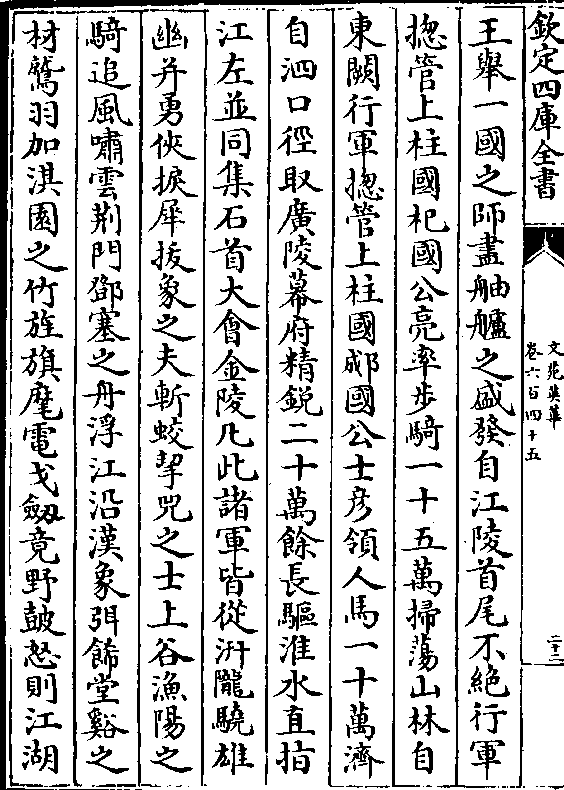 欽定四庫全書
文苑英華
卷六百四十五
二十二
王舉一國之師盡舳艫之盛發自江陵首尾不絶行軍
揔管上柱國杞國公亮率步騎一十五萬掃蕩山林自
東闕行軍揔管上柱國郕國公士彦領人馬一十萬濟
自泗口徑取廣陵幕府精鋭二十萬餘長驅淮水直指
江左並同集石首大會金陵凡此諸軍皆從汧隴驍雄
幽并勇俠捩犀拔象之夫斬蛟挈兕之士上谷漁陽之
騎追風嘯雲荆門鄧塞之舟浮江沿漢象弭餙堂谿之
材鷲羽加淇園之竹旌旗麾電戈劔竟野鼓怒則江湖